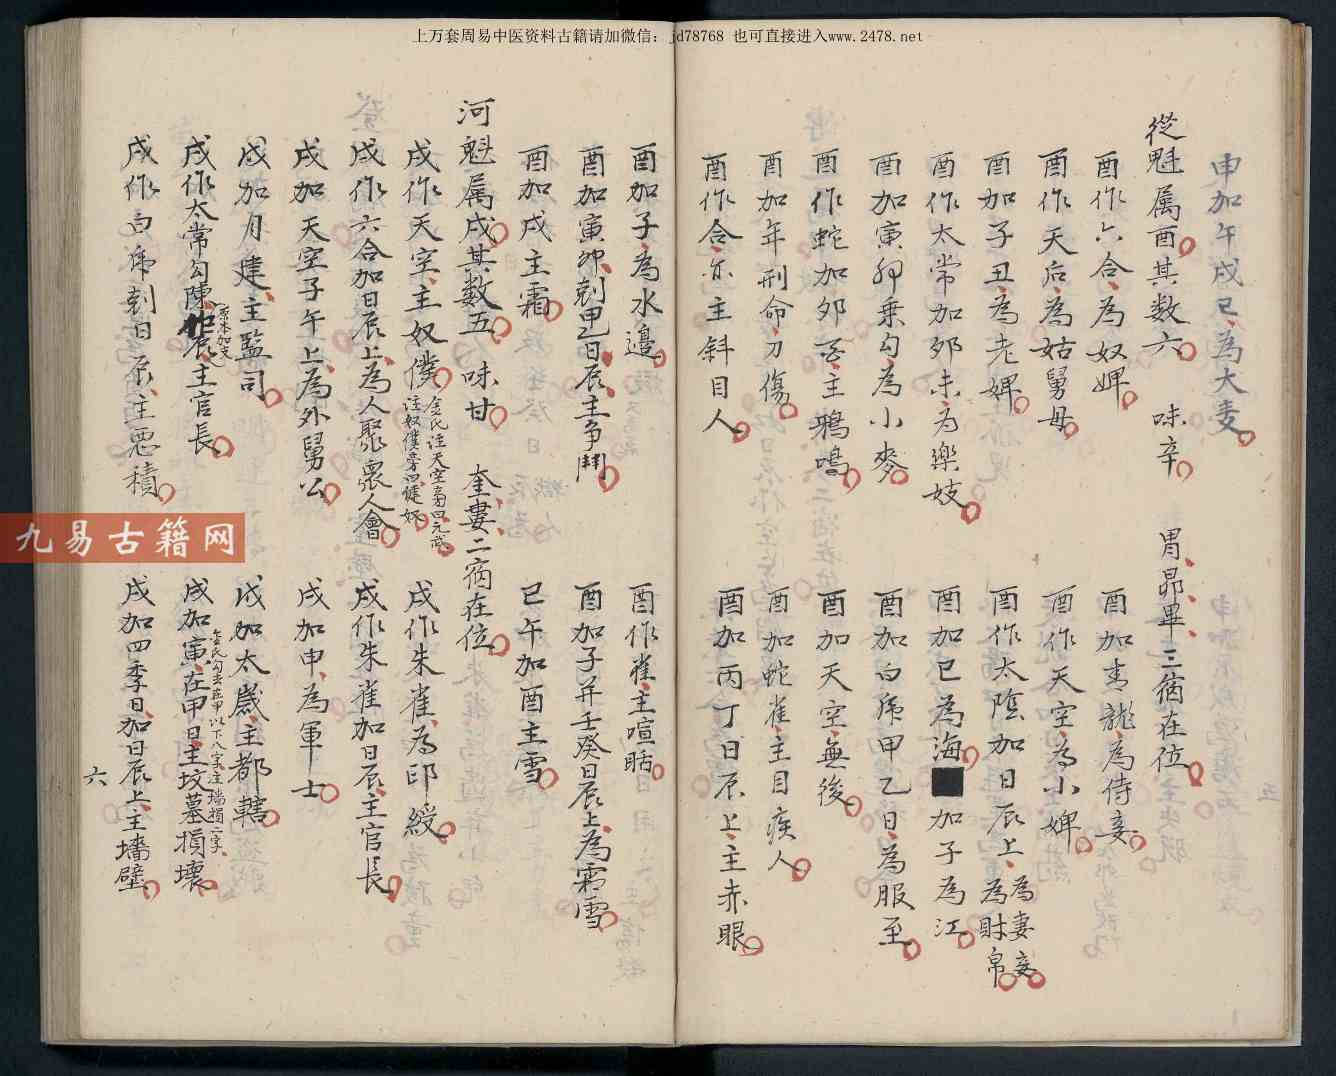 上万套周易中医资料古籍请加微信：jd78768 也可直接进入www.2478.net
申加午戌巳為大麦
從魁属酉其数六 味辛 胃昴畢三宿在位
酉作六合為奴婢 酉加青龍為侍妾
酉作天后為姑舅母 酉作天空為小婢
酉加子丑為老婢 酉作太陰加日辰上為妻妾為財帛
酉作太常加卯未为樂妓 酉加巳為海 加子為江
酉加寅卯乗勾為小麥 酉加白虎甲乙日為服至
酉作蛇加卯酉主鴉鳴 酉加天空無後
酉加年刑命刀傷 酉加蛇雀主目疾人
酉作合亦主斜目人 酉加丙丁日辰上主赤眼
酉加子為水邉 酉作雀主喧聒
酉加寅卯剋甲乙日辰主争鬥 酉加子并壬癸日辰上為霜雪
酉加戌主霜 巳午加酉主雪
河魁属戌其数五 味甘 奎婁二宿在位
戌作天空主奴僕 金氏注天空旁曰元武注奴僕旁曰健奴 戌作朱雀為印綬
戌作六合加日辰上為人聚衆人會 戌作朱雀加日辰主官長
戌加天空子午上為外舅公 戌加申為軍士
戌加月建主監司 戌加太歲主都轄
戌作太常勾陳加辰 原本加支 主官長 戌加寅在甲日主坟墓損壞 金氏勾去在甲以下八字注 損二字
戌作白虎剋日辰主悪積 戌加四季日加日辰上主墻壁
六
九易古籍网